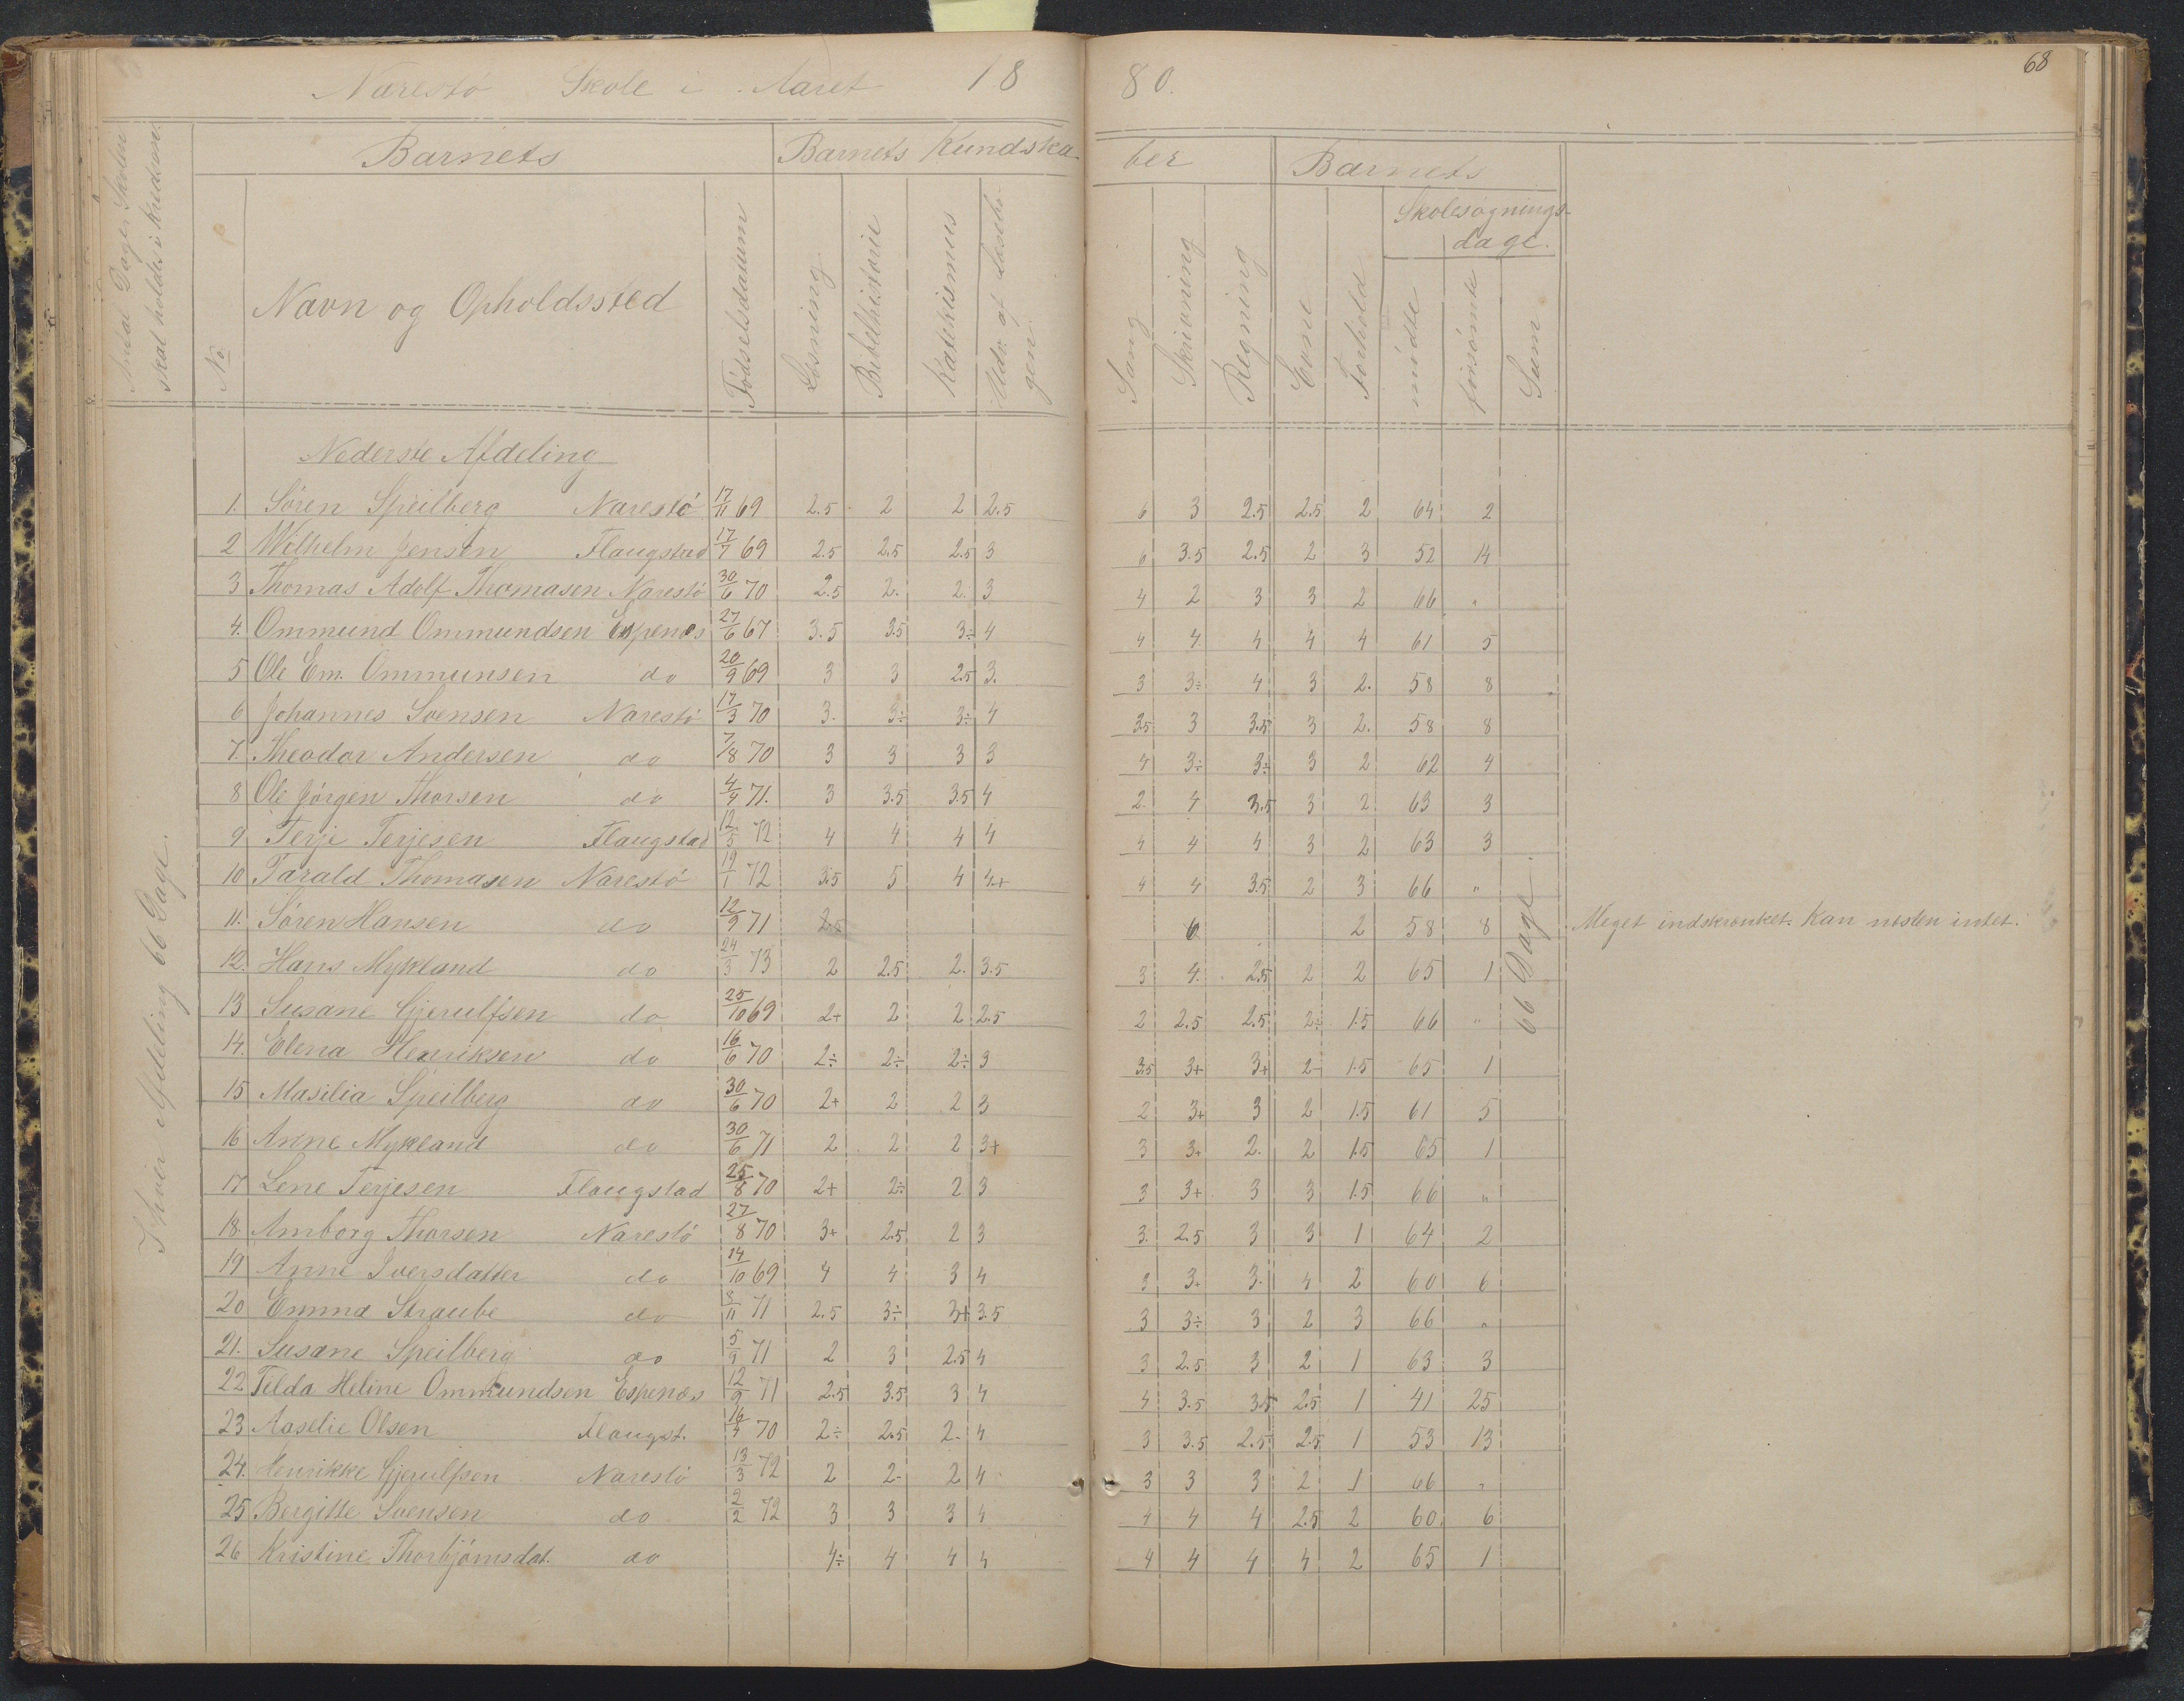 68
Narestø Skole i Aaret 1880.
Antal Dage Skolen skal holdes i Kredsen.
Barnets Barnets Kundskaber Barnets
No Navn og Opholdssted Fødselsdatum Læsning Bibelhistorie Katekismus Udv. af Læsebogen. Sang Skrivning Regning Evne Forhold Skolesøgningsdage. mødte forsømte Sum
I hver Afdeling 66 Dage.
Nederste Afdeling
1. Søren Speilberg Narestø 17/11 69 2.5 2 2 2.5 6 3 2.5 2.5 2 64 2
2 Wilhelm Jensen Flaugstad 17/7 69 2.5 2.5 2.5 3 6 3.5 2.5 2 3 52 14
3 Thomas Adolf Thomasen Narestø 30/6 70 2.5 2. 2. 3 4 2 3 3 2 66 "
4. Ommund Ommundsen Espenes 27/6 67 3.5 3.5 3÷ 4 4 4 4 4 4 61 5
5 Ole Em. Ommunsen do 20/9 69 3 3 2.5 3. 3 3÷ 4 3 2. 58 8
6 Johannes Svensen Narestø 17/3 70 3. 3÷ 3÷ 4 3.5 3 3.5 3 2. 58 8
7. Theodor Andersen do 7/8 70 3 3 3 3 4 3÷ 3÷ 3 2 62 4
8 Ole Jørgen Thorsen do 4/4 71. 3 3.5 3.5 4 2. 4 3.5 3 2 63 3
9 Terje Terjesen Flaugstad 12/5 72 4 4 4 4 4 4 4 3 2 63 3
10 Tarald Thomasen Narestø 19/1 72 3.5 5 4 4+ 4 4 3.5 2 3 66 "
11. Søren Hansen do 12/9 71 2.5 6 2 58 8 Meget indskrænket. Kan nesten intet.
12. Hans Mykland do 24/3 73 2 2.5 2. 3.5 3 4. 2.5 2 2 65 1
66 Dage
13 Susane Gjerulfsen do 25/10 69 2+ 2 2 2.5 2 2.5 2.5 2÷ 1.5 66 "
14. Elena Henriksen do 16/6 70 2÷ 2÷ 2÷ 3 3.5 3+ 3+ 2- 1.5 65 1
15 Masilia Speilberg do 30/6 70 2+ 2 2 3 2 3+ 3 2 1.5 61 5
16 Anne Mykland do 30/6 71 2 2 2 3+ 3 3+ 2. 2 1.5 65 1
17 Lene Terjesen Flaugstad 25/8 70 2+ 2÷ 2 3 3 3+ 3 3 1.5 66 "
18. Amborg Thorsen Narestø 27/8 70 3+ 2.5 2 3 3. 2.5 3 3 1 64 2
19 Anne Iversdatter do 14/10 69 4 4 3 4 3 3+ 3. 4 2 60 6
20 Emma Straube do 8/11 71 2.5 3÷ 3+ 3.5 3 3÷ 3 2 3 66 "
21. Susane Speilberg do 5/9 71 2 3 2.5 4 3 2.5 3 2 1 63 3
22 Telda Heline Ommundsen Espenæs 12/9 71 2.5 3.5 3 4 4 3.5 3.5 2.5 1 41 25
23 Aaselie Olsen Flaugst. 16/4 70 2÷ 2.5 2- 4 3 3.5 2.5 2.5 1 53 13
24. Henrikke Gjerulfsen Narestø 13/3 72 2 2- 2 4 3 3 3 2 1 66 "
25 Bergitte Svensen do 2/2 72 3 3 3 4 4 4 4 2.5 2 60 6
26 Kristine Thorbjørnsdat. do 4÷ 4 4 4 4 4 4 4 2 65 1